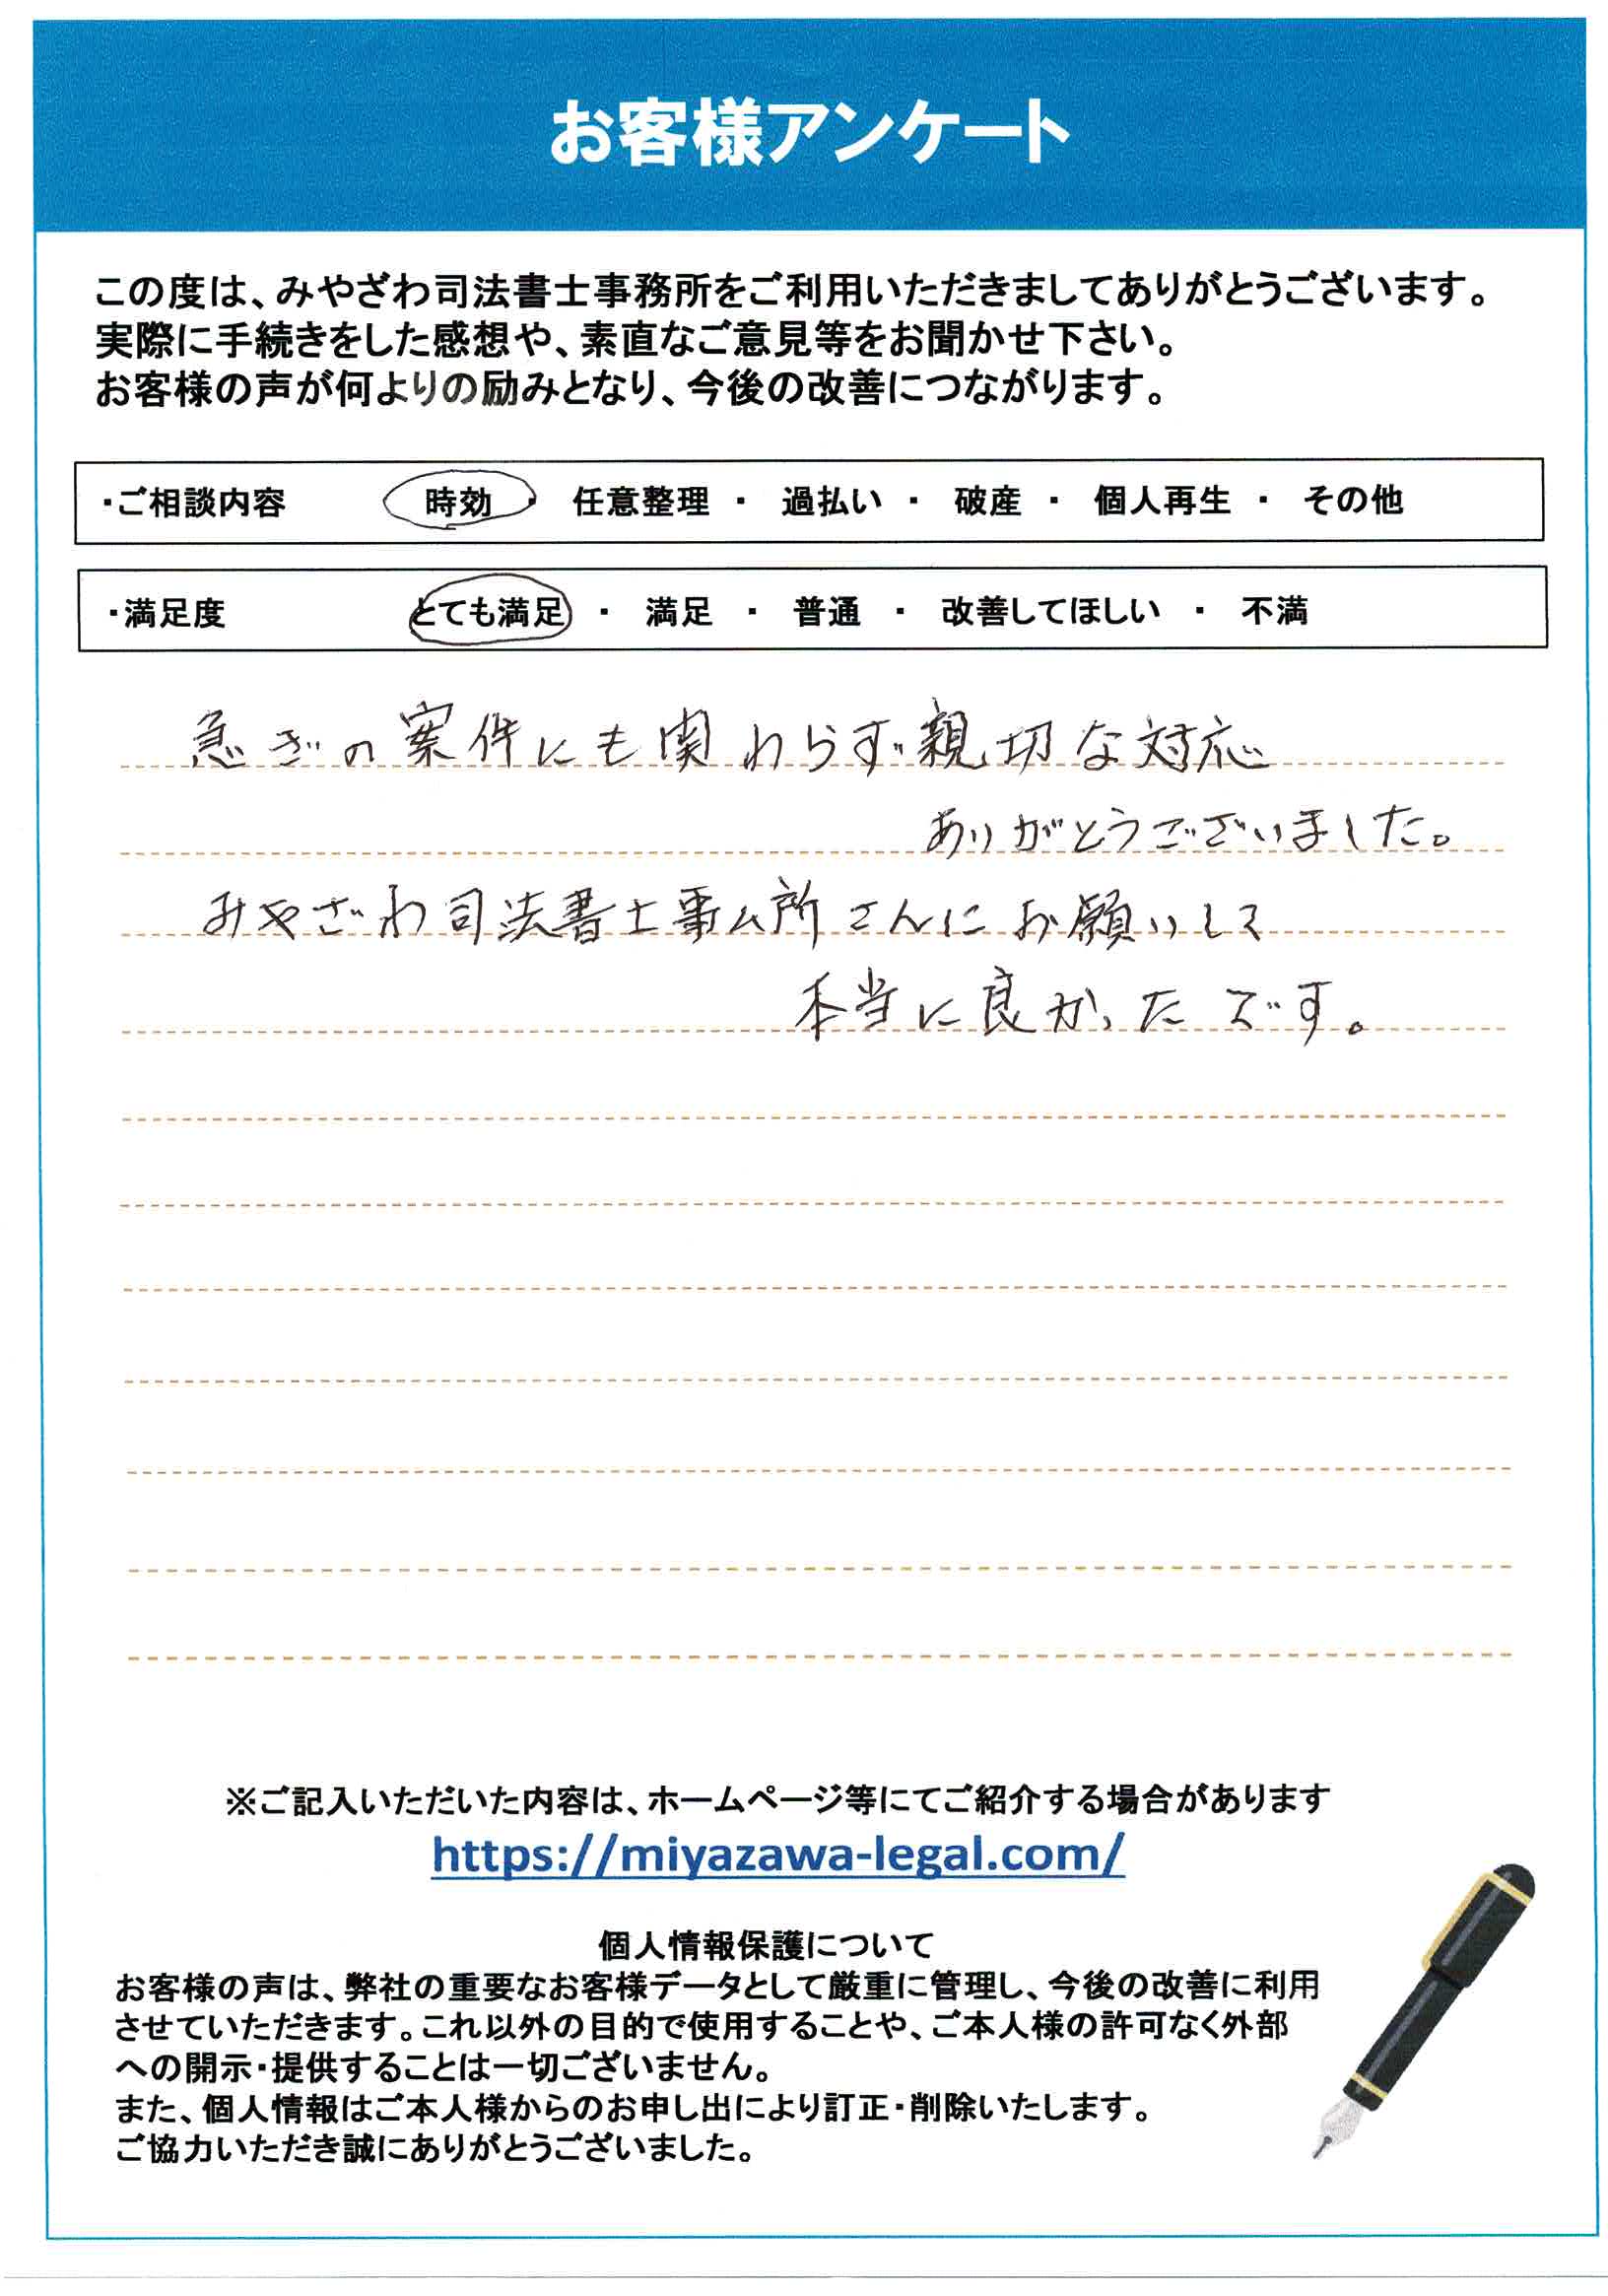 お客様アンケート
この度は、みやざわ司法書士事務所をご利用いただきましてありがとうございます。
実際に手続きをした感想や、素直なご意見等をお聞かせ下さい。
お客様の声が何よりの励みとなり、今後の改善につながります。
・ご相談内容 時効 ・ 任意整理 ・ 過払い ・ 破産 ・ 個人再生 ・ その他
・満足度 とても満足 ・ 満足 ・ 普通 ・ 改善してほしい ・ 不満
急ぎの案件にも関わらず親切な対応
ありがとうございました。
みやざわ司法書士事ム所さんにお願いして
本当に良かったです。
※ご記入いただいた内容は、ホームページ等にてご紹介する場合があります
https://miyazawa-legal.com/
個人情報保護について
お客様の声は、弊社の重要なお客様データとして厳重に管理し、今後の改善に利用
させていただきます。これ以外の目的で使用することや、ご本人様の許可なく外部
への開示・提供することは一切ございません。
また、個人情報はご本人様からのお申し出により訂正・削除いたします。
ご協力いただき誠にありがとうございました。